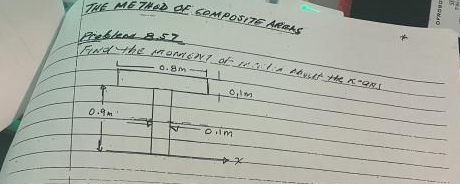 THE METHOD OF COMPOSITE AREAS
Problem 8.57
Find the moment of about the x-axis
0.8m
0.1m
0.9m
0.1m
x